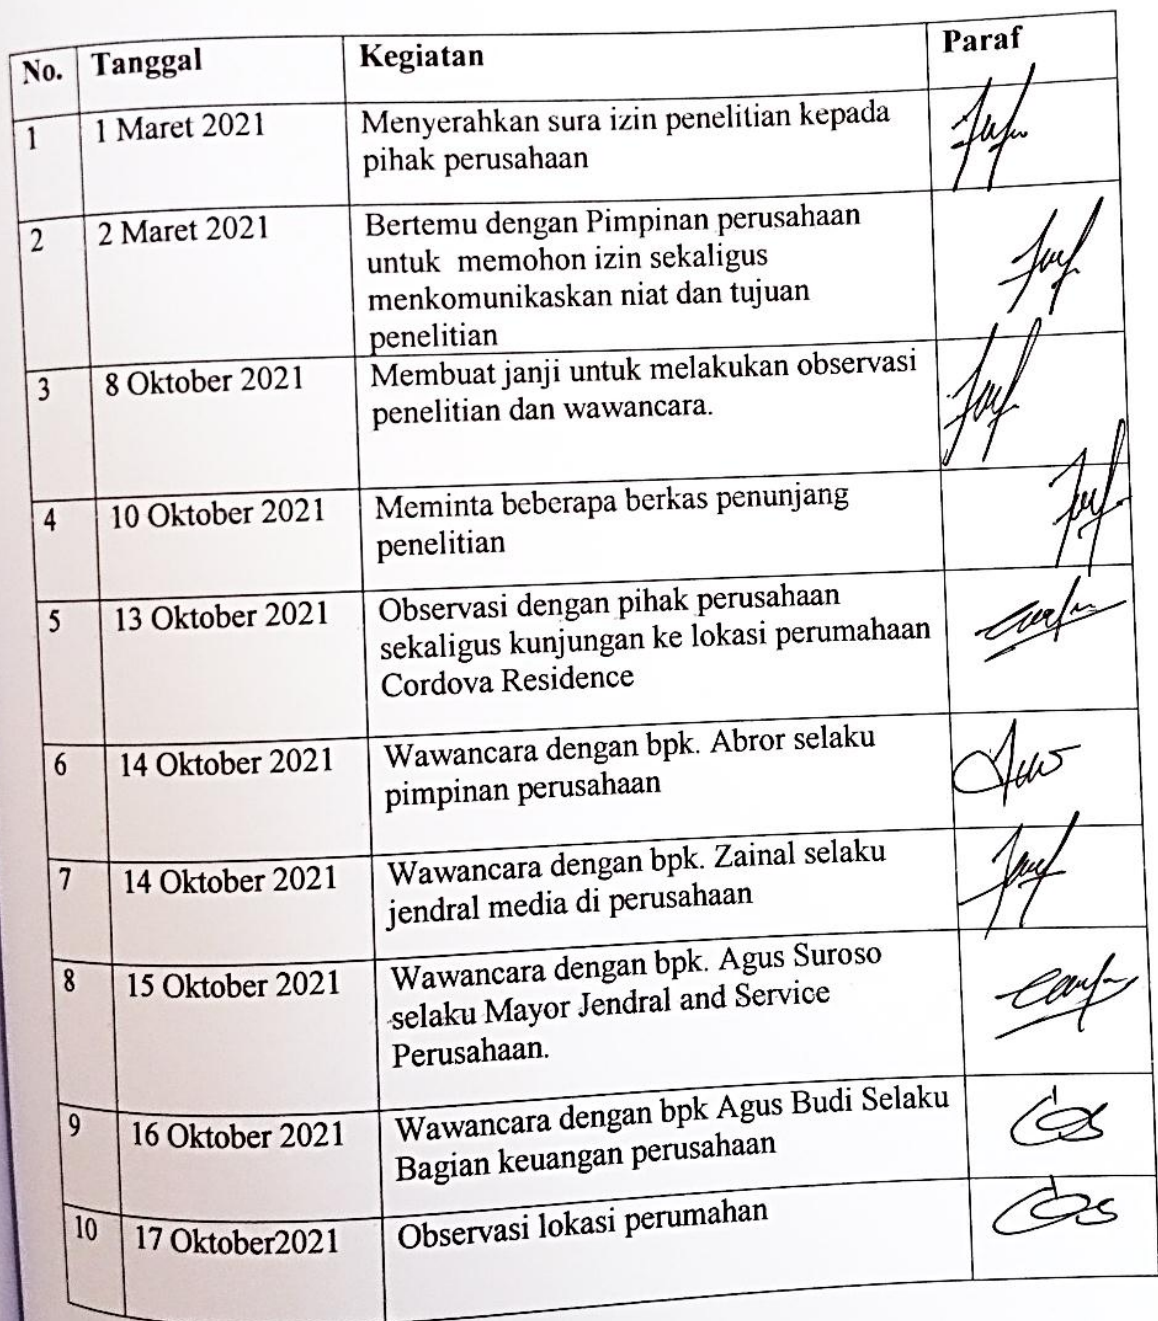 No. Tanggal Kegiatan Paraf
1 1 Maret 2021 Menyerahkan sura izin penelitian kepada
pihak perusahaan
2 2 Maret 2021 Bertemu dengan Pimpinan perusahaan
untuk memohon izin sekaligus
menkomunikaskan niat dan tujuan
penelitian
3 8 Oktober 2021 Membuat janji untuk melakukan observasi
penelitian dan wawancara.
4 10 Oktober 2021 Meminta beberapa berkas penunjang
penelitian
5 13 Oktober 2021 Observasi dengan pihak perusahaan
sekaligus kunjungan ke lokasi perumahaan
Cordova Residence
6 14 Oktober 2021 Wawancara dengan bpk. Abror selaku
pimpinan perusahaan
7 14 Oktober 2021 Wawancara dengan bpk. Zainal selaku
jendral media di perusahaan
8 15 Oktober 2021 Wawancara dengan bpk. Agus Suroso
selaku Mayor Jendral and Service
Perusahaan.
9 16 Oktober 2021 Wawancara dengan bpk Agus Budi Selaku
Bagian keuangan perusahaan
10 17 Oktober2021 Observasi lokasi perumahan